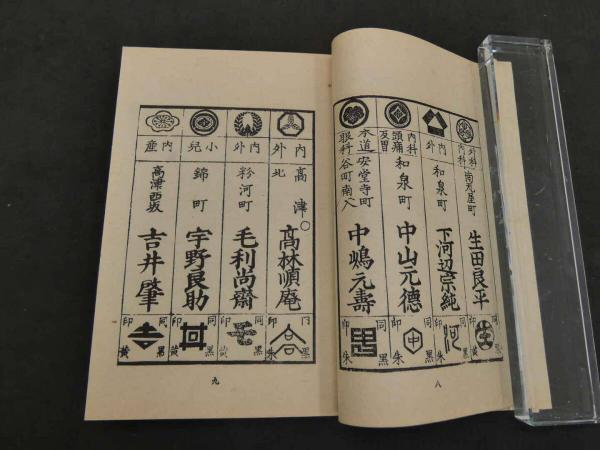 外科
内科
南瓦屋町
生田良平
同黒
印
内
外
和泉町
下河辺宗純
同黒
河
印朱
内科
頭痛
反胃
和泉町
中山元徳
同黒
中
印朱
本道
眼科
安堂寺町
谷町南入
中嶋元壽
同黒
印朱
八
内
外
高津
北
高林順庵
同黒
合
印朱
内
外
粉河町
毛利尚齋
同黒
毛
印黄
小児
錦町
宇野良助
同黒
印黄
内
産
高津西坂
吉井肇
同黒
印黄
九